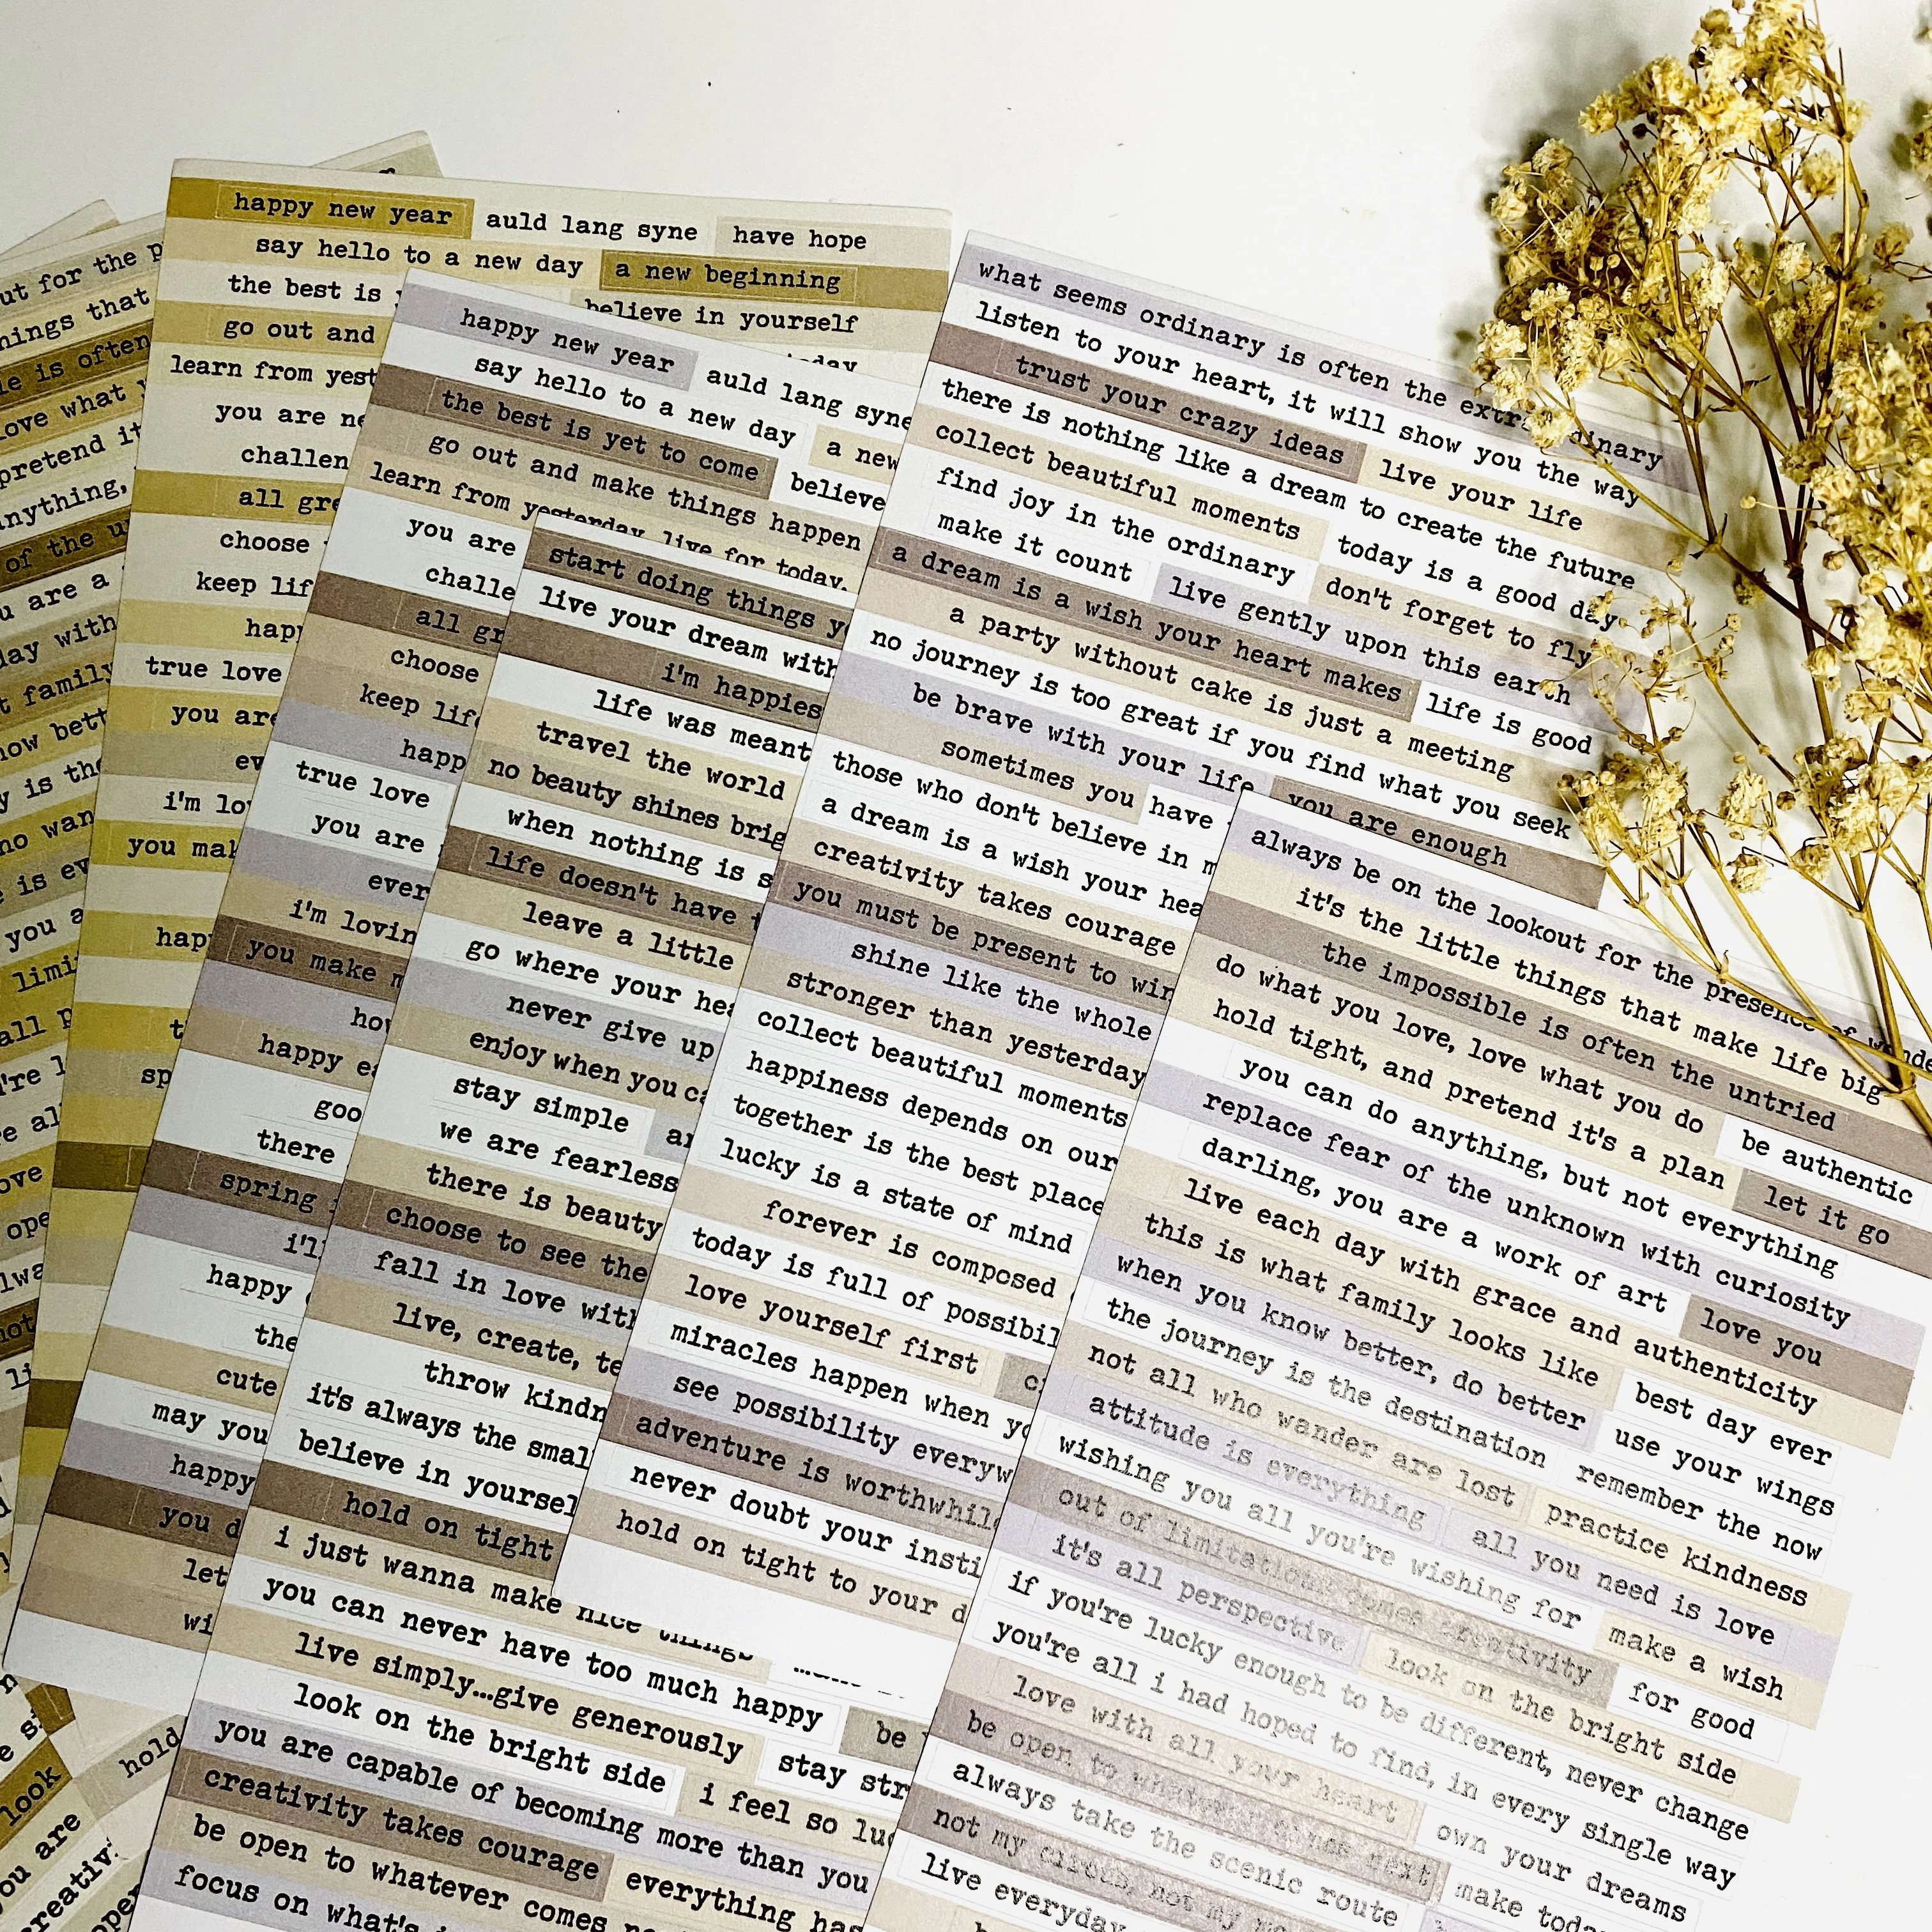 ut for the p
ings that
le is often
love what
pretend it
nything,
of the u
u are a
day with
t family
now bett
y is the
ho wan
e is ev
you a
limi
all p
're l
e al
ove
ope
lwa
not
li
look
you are
creativ
hold
happy new year auld lang syne have hope
say hello to a new day a new beginning
the best is believe in yourself
go out and today
learn from yest
you are ne
challen
all gre
choose
keep lif
happ
true love
you are
ev
i'm lo
you mak
happ
t
sp
happy new year auld lang syne
say hello to a new day a new
the best is yet to come believe
go out and make things happen
learn from yesterday, live for today,
you are
challe
all gr
choose
keep life
happ
true love
you are
ever
i'm lovin
you make m
how
happy ea
goo
there
spring
i'll
happy
the
cute
may you
happy
you d
let
wi
start doing things y
live your dream with
i'm happies
life was meant
travel the world
no beauty shines brig
when nothing is s
life doesn't have t
leave a little
go where your hea
never give up
enjoy when you ca
stay simple
we are fearless
there is beauty
choose to see the
fall in love with
live, create, te
throw kindn
it's always the smal
believe in yoursel
hold on tight
i just wanna make nice things
you can never have too much happy
live simply...give generously be
look on the bright side stay str
you are capable of becoming more than you
creativity takes courage i feel so luc
be open to whatever comes
everything has
focus on what's
what seems ordinary is often the extraordinary
listen to your heart, it will show you the way
trust your crazy ideas live your life
there is nothing like a dream to create the future
collect beautiful moments today is a good day
find joy in the ordinary don't forget to fly
make it count live gently upon this earth
a dream is a wish your heart makes life is good
a party without cake is just a meeting
no journey is too great if you find what you seek
be brave with your life you are enough
sometimes you have
those who don't believe in m
a dream is a wish your hea
creativity takes courage
you must be present to win
shine like the whole
stronger than yesterday
collect beautiful moments
happiness depends on our
together is the best place
lucky is a state of mind
forever is composed
today is full of possibil
love yourself first
miracles happen when yo
see possibility everyw
adventure is worthwhile
never doubt your insti
hold on tight to your d
always be on the lookout for the presence of wonde
it's the little things that make life big
the impossible is often the untried
do what you love, love what you do be authentic
hold tight, and pretend it's a plan let it go
you can do anything, but not everything
replace fear of the unknown with curiosity
darling, you are a work of art love you
live each day with grace and authenticity
this is what family looks like best day ever
when you know better, do better use your wings
the journey is the destination remember the now
not all who wander are lost practice kindness
attitude is everything all you need is love
wishing you all you're wishing for make a wish
out of limitations comes creativity for good
it's all perspective look on the bright side
if you're lucky enough to be different, never change
you're all i had hoped to find, in every single way
love with all your heart own your dreams
be open to whatever comes next make toda
always take the scenic route
not my circus, not my mo
live everyday